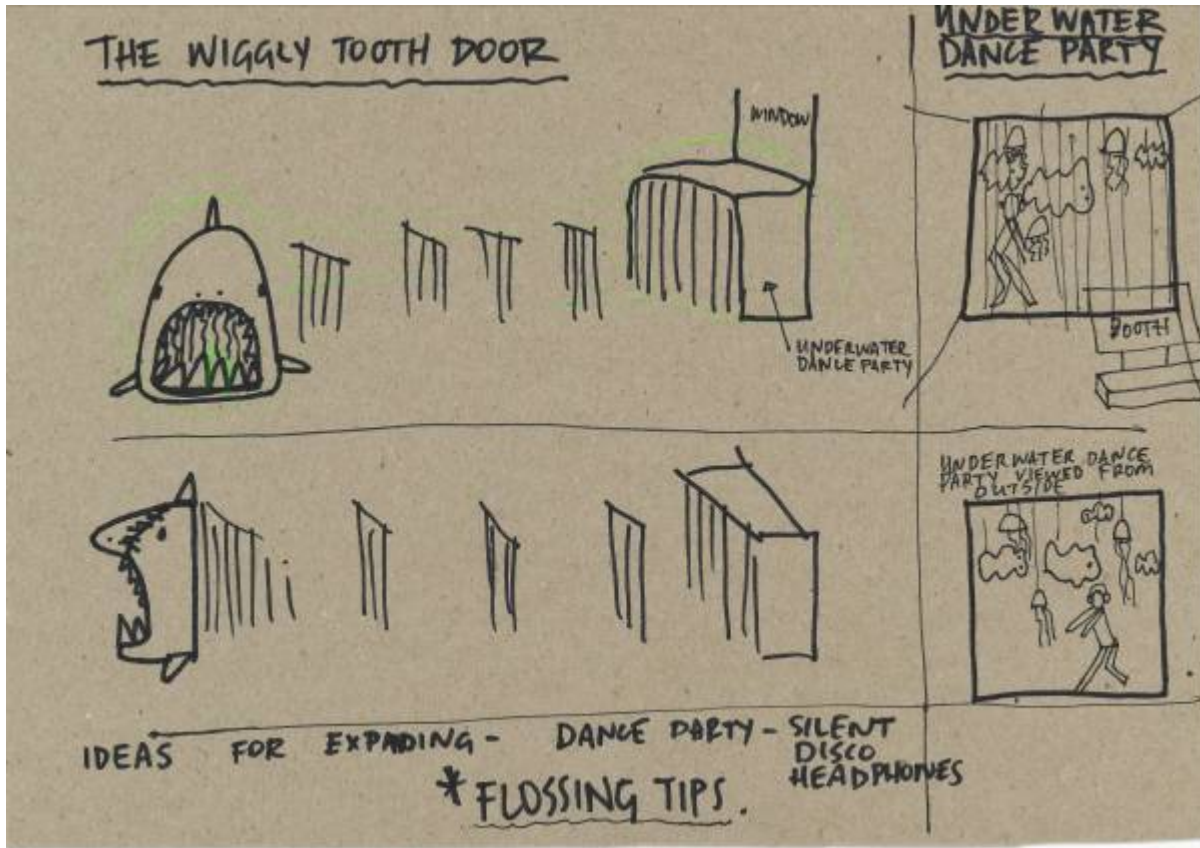 THE WIGGLY TOOTH DOOR
WINDOW
UNDERWATER
DANCE PARTY
UNDER WATER
DANCE PARTY
BOOTH
UNDERWATER DANCE
PARTY VIEWED FROM
OUTSIDE
IDEAS FOR EXPADING - DANCE PARTY - SILENT
DISCO
HEADPHONES
* FLOSSING TIPS.